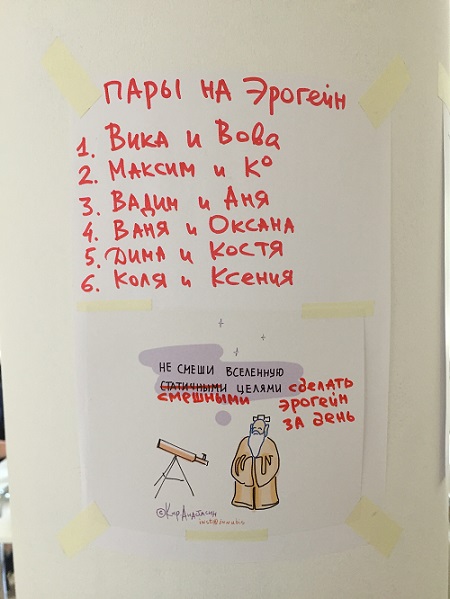 ПАРЫ НА ЭРОГЕЙН
1. ВИКА И ВОВА
2. МАКСИМ И Ко
3. ВАДИМ И АНЯ
4. ВАНЯ И ОКСАНА
5. ДИМА И КОСТЯ
6. КОЛЯ И КСЕНИЯ
НЕ СМЕШИ ВСЕЛЕННУЮ
СТАТИЧНЫМИ ЦЕЛЯМИ СДЕЛАТЬ
СМЕШНЫМИ ЭРОГЕЙН
ЗА ДЕНЬ
© Кир Анастасия